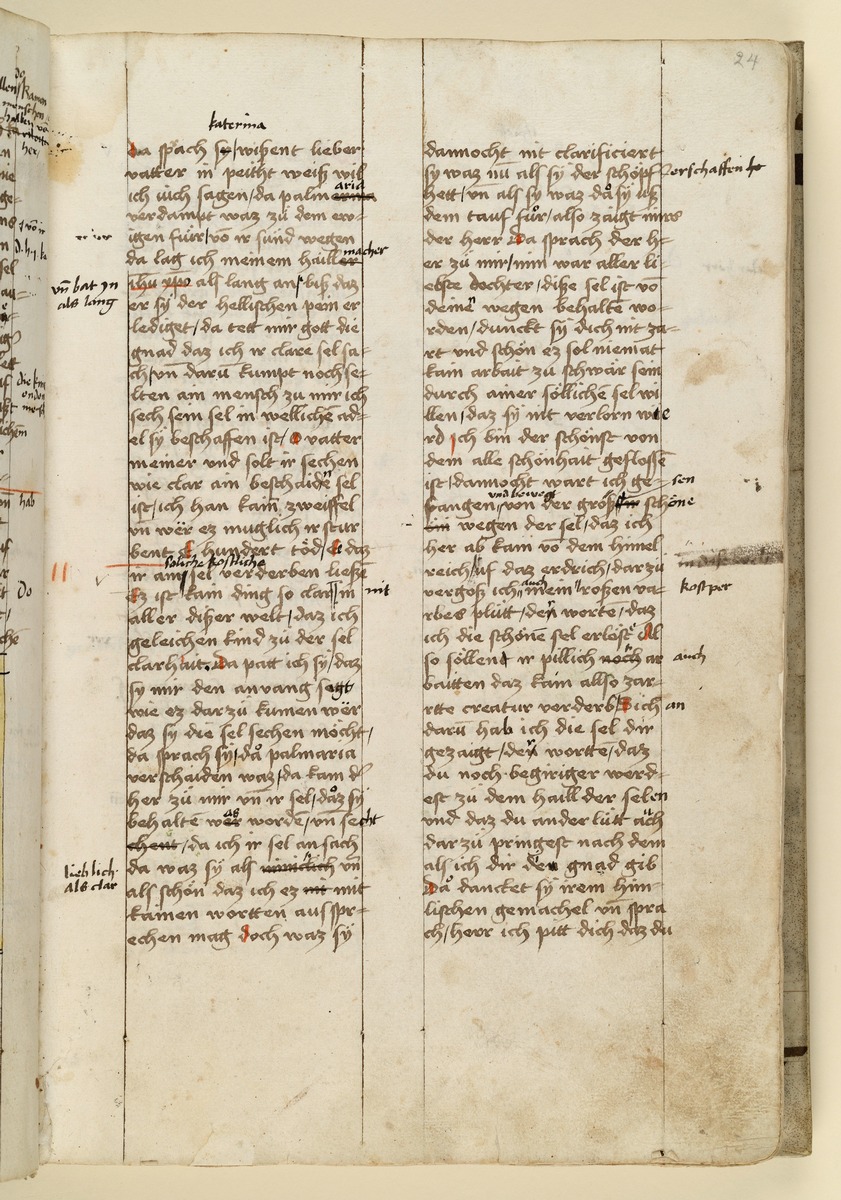 24
katerina
Da spach sy / wißent lieber
vatter in peitht weiß wil
ich iuch sagen / da palm
aria
verdampt waz zu dem ew-
igen fuͤr / vō ir sünd wegen
da lag ich meinem haill
macher
vn̄ bat yn
als lang
als lang an / biß daz
er sy der hellischen pein er
lediget / da tett mir gott die
gnad daz ich ir clare sel sa-
ch / vn̄ darū kumpt noch se-
lten ain mensch zu mir ich
sech sein sel in wellichē ad-
el sy beschaffen ist / O vatter
meiner vnd solt ir sechen
wie clar ain beschaiden sel
ist / ich han kain zweiffel
vn̄ wër ez muglich ir stur
bent hundert töd / E daz
soliche kostliche
ir ain sel verderben ließē
Ez ist kain ding so clar in
nit
aller dißer welt / daz ich
geleichen kind zu der sel
clarhait. Da patt ich sy / daz
sy mir den anvang segt
wie ez dar zu kumen wër
daz sy die sel sechen möcht /
da sprach sy / då palmaria
verschaiden waz / da kam d'
her zu mir vn̄ ir sel / daz sy
behalte wër worden / vn̄ secht
da ich ir sel an sach
lieblich
als clar
da waz sy als vn̄
als schön daz ich ez mit
kainen wortten aus spr-
echen mag doch waz sy
dannocht nit clarificiert
sy waz nū als sy der schöpf
erschaffen
hett / vn̄ als sy waz då sy uß
dem tauf fuͤr / also zaigt mirs
der herr Da sprach der h-
er zu mir / min war aller li-
ebste dochter / diße sel ist vō
deinē wegen behalte wo-
rden / dunckt sy dich nit za-
rt vnd schön ez sol niemat
kain arbait zu schwär sein
durch ainer söllichē sel wi
llen / daz sy nit verlorn we
rd Ich bin der schönst von
dem alle schönhait geflossē
ist / dannocht wart ich ge-
fangen von der größ schöne
vnd bewegt
wegen der sel / daz ich
her ab kam vō dem himel
reich / uf daz erdrich / dar zu
vergoß ich mein roßen va-
auch
kosper
rbes plutt / den worte / daz
ich die schöne sel erlöst Al
so söllent ir pillich noch ar
auch
baitten daz kain allso zar-
rtte creatur verderb / Sich an
darū hab ich die sel dir
gezaigt / den wortte / daz
du noch begiriger werd-
est zu dem haill der selen
vnd daz du ander lütt ach
dar zu pringest nach dem
als ich dir den gnad gib
Da dancket sy irem him-
lischen gemachel vn̄ spra
ch / herr ich pitt dich daz du